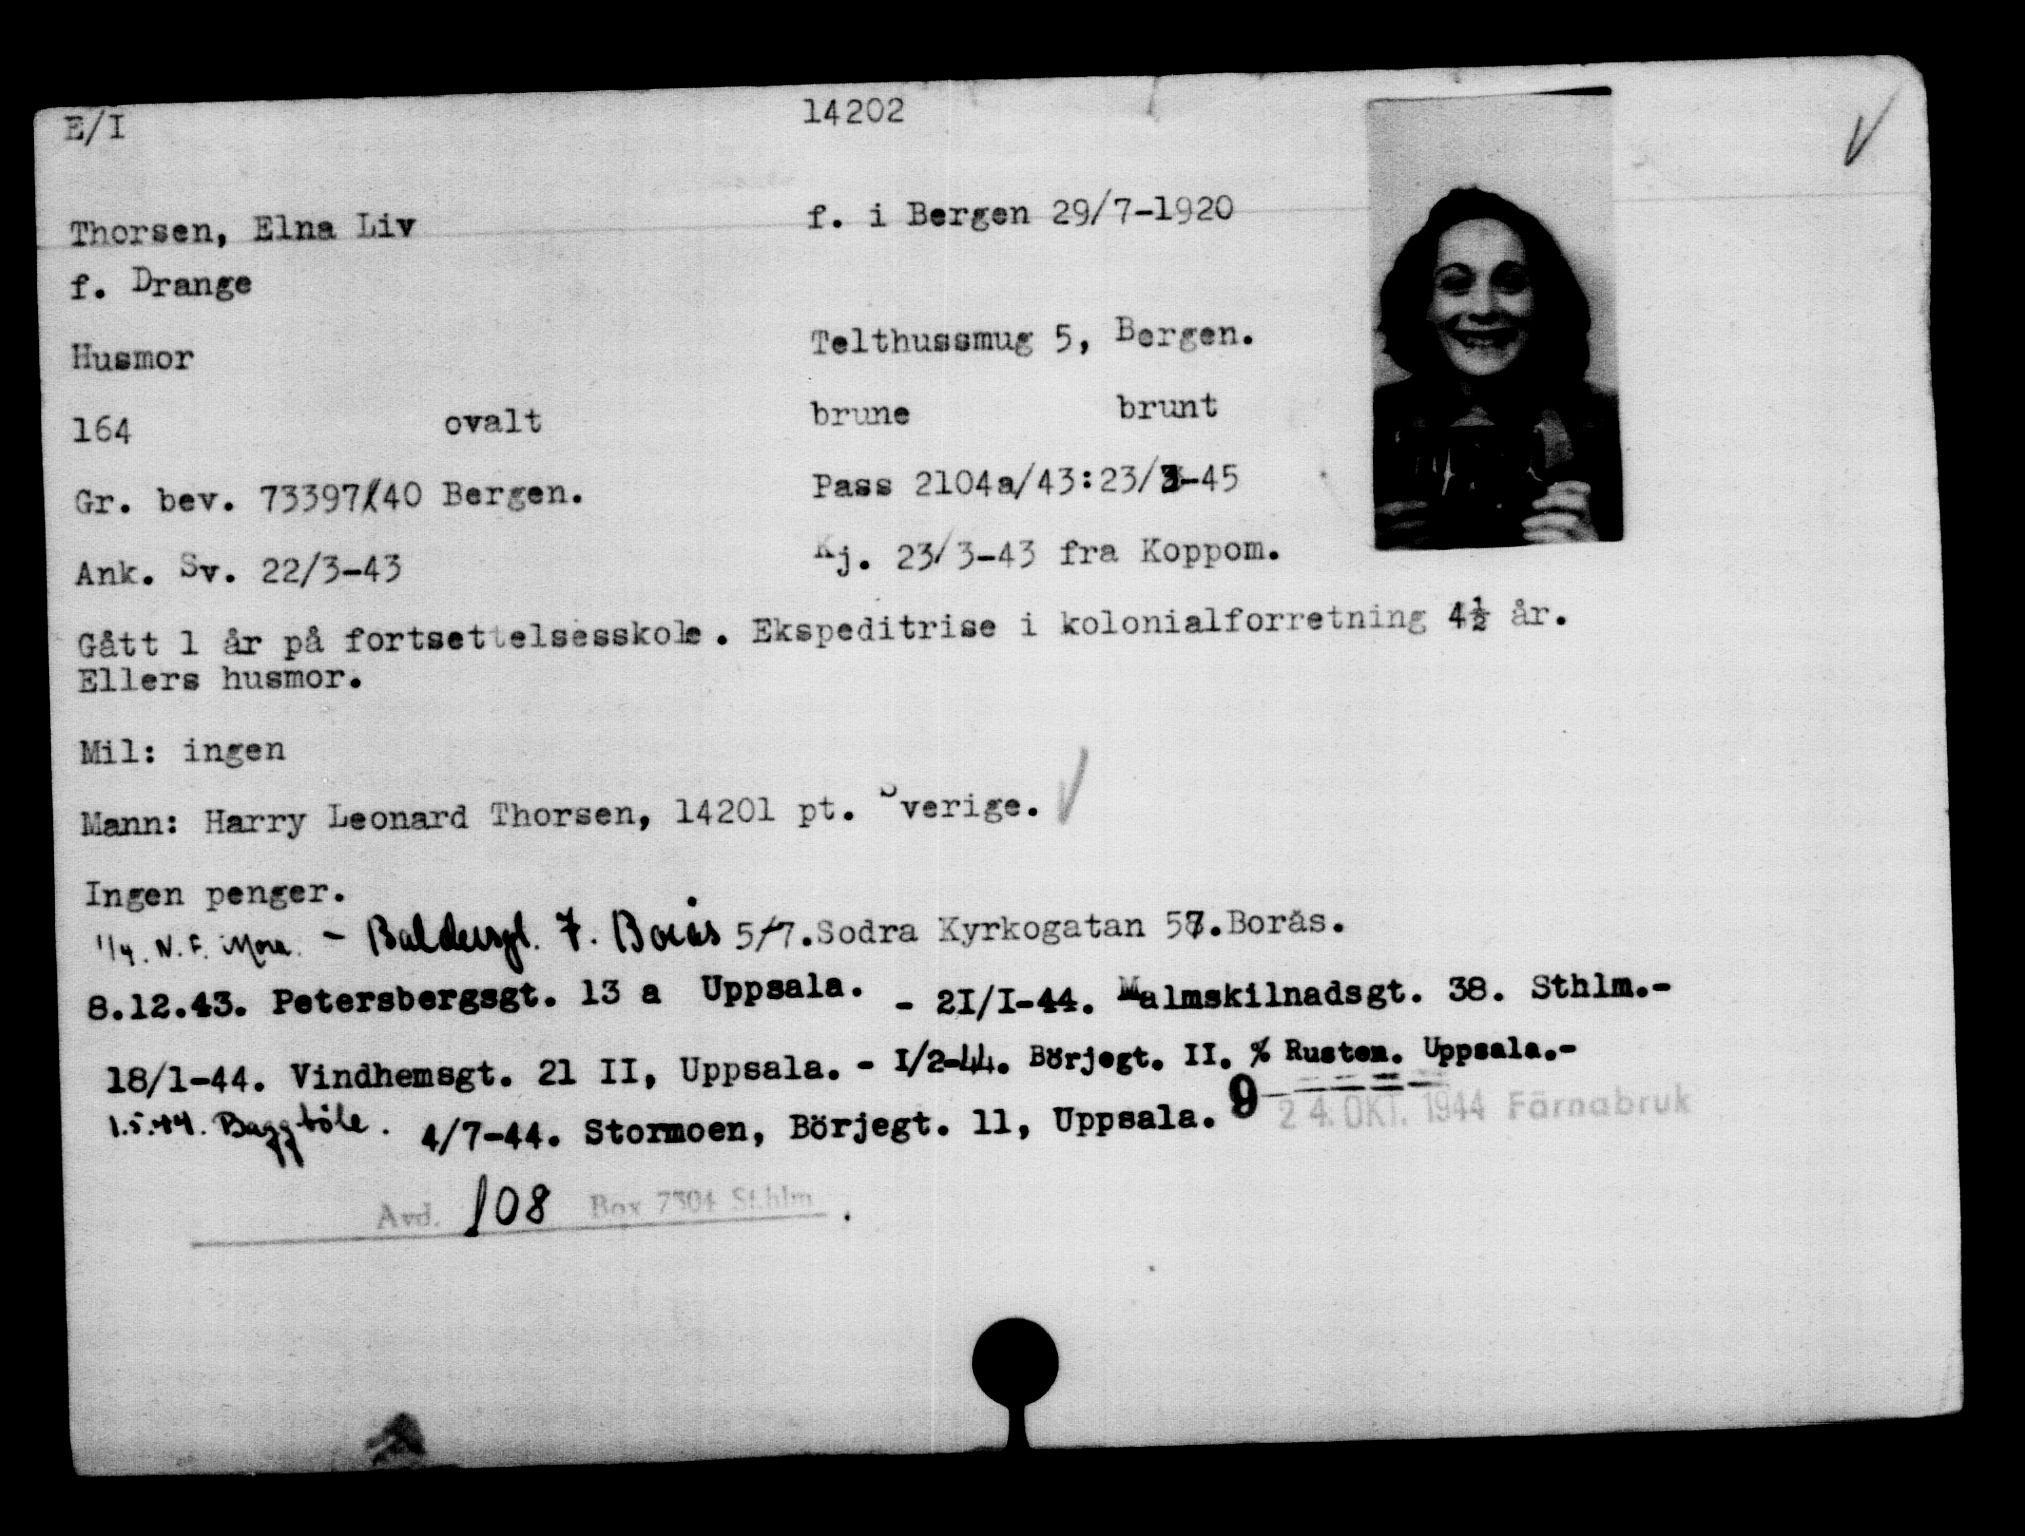 E/I 14202
Thorsen, Elna Liv f. i Bergen 29/7-1920
f. Drange
Husmor Telthussmug 5, Bergen.
164 ovalt brune brunt
Gr. bev. 73397/40 Bergen. Pass 2104a/43:23/3-45
Ank. Sv. 22/3-43 Kj. 23/3-43 fra Koppom.
Gått 1 år på fortsettelsesskole. Ekspeditrise i kolonialforretning 4½ år.
Ellers husmor.
Mil: ingen
Mann: Harry Leonard Thorsen, 14201 pt. Sverige.
Ingen penger.
1/4. N.F. Mora. - Baldersgt. 7. Borås 5/7. Sodra Kyrkogatan 57. Borås.
8.12.43. Petersbergsgt. 13 a Uppsala. - 2I/I-44. Malmskilnadsgt. 38. Sthlm.-
18/1-44. Vindhemsgt. 21 II, Uppsala. - I/2-44. Börjegt. II. % Rusten. Uppsala.-
1.5.44. Baggböle. 4/7-44. Stormoen, Börjegt. 11, Uppsala. 9 24. OKT. 1944 Färnabruk
Avd. 108 Box 7304 Sthlm